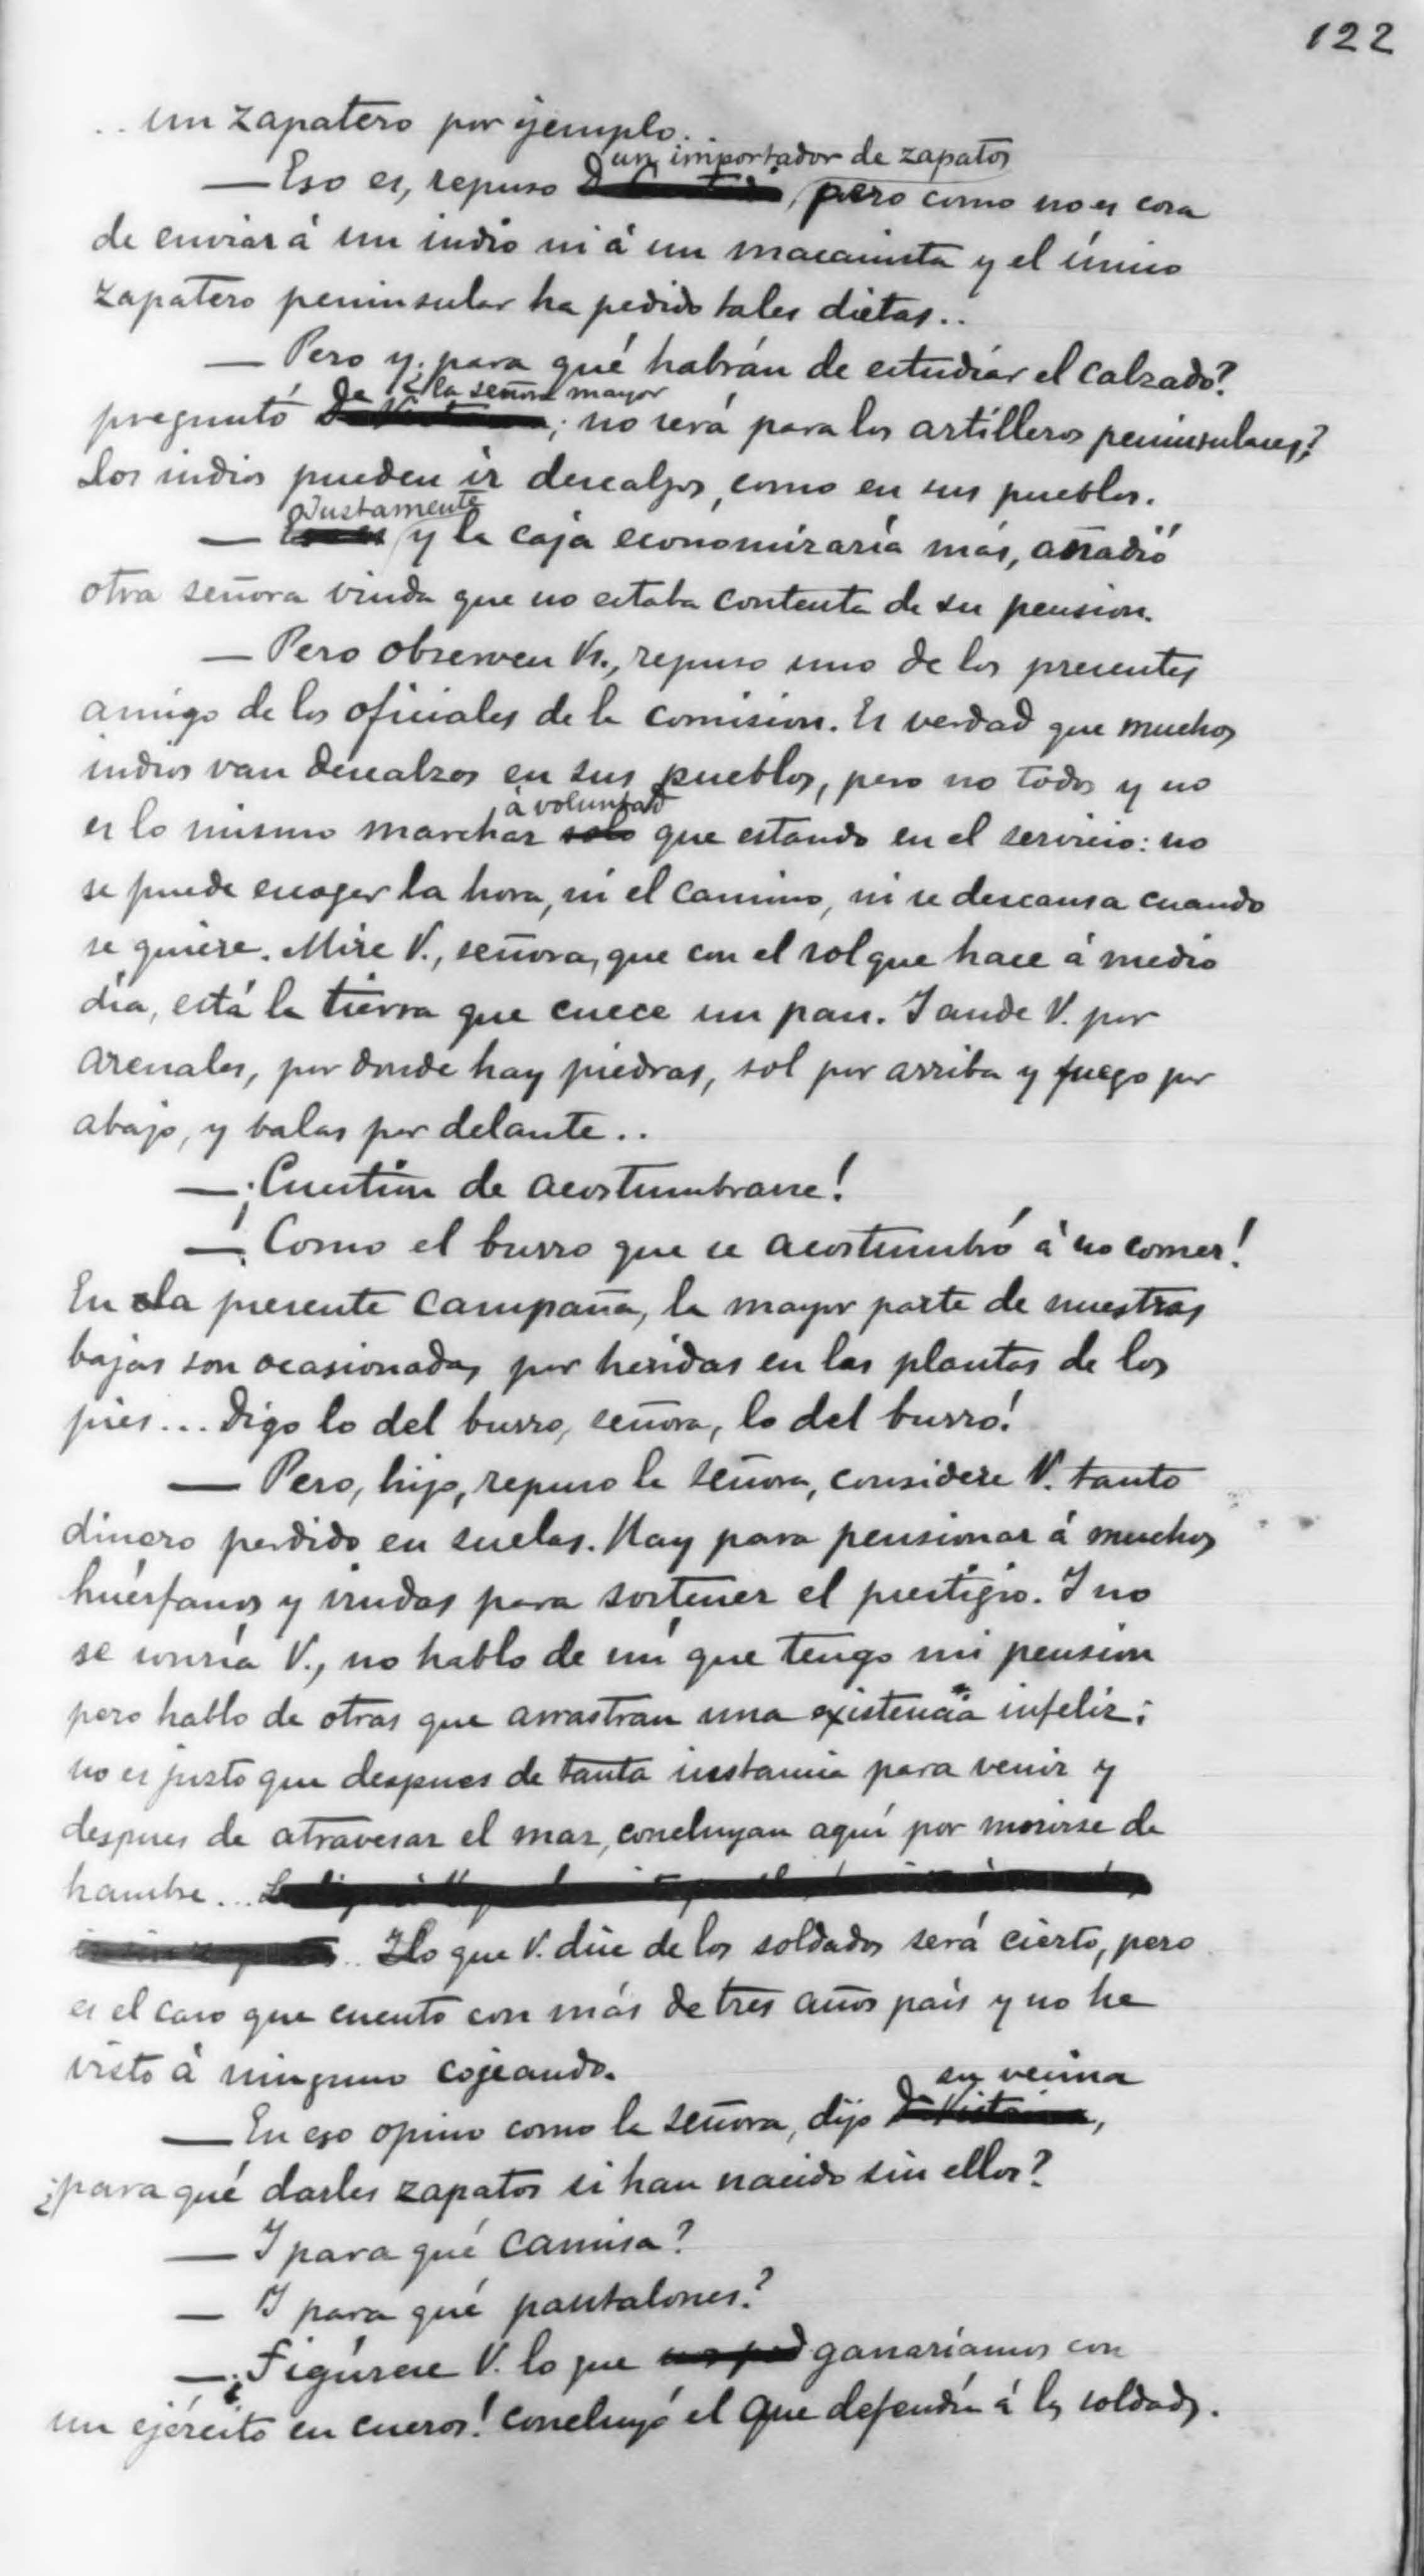 122
.. un zapatero por ejemplo..
un importador de zapatos
— Eso es, repuso D , pero como no es cosa
de enviar á un indio ni á un macanista y el único
zapatero peninsular ha pedido tales dietas..
— Pero y ¿para qué habrán de estudiar el calzado?
la señora mayor
preguntó Da ; no será para los artilleros peninsulares?
Los indios pueden ir descalzos, como en sus pueblos.
Justamente
— Eso es y la caja economizaría más, añadió
otra señora viuda que no estaba contenta de su pension.
— Pero observen Vs., repuso uno de los presentes
amigo de los oficiales de la comision. Es verdad que muchos
indios van descalzos en sus pueblos, pero no todos y no
á voluntad
es lo mismo marchar solo que estando en el servicio: no
se puede escoger la hora, ni el camino, ni se descansa cuando
se quiere. Mire V., señora, que con el sol que hace á medio
dia, está la tierra que cuece un pan. I ande V. por
arenales, por donde hay piedras, sol por arriba y fuego por
abajo, y balas por delante..
— ¡Cuestion de acostumbrarse!
— ¡Como el burro que se acostumbró á no comer!
En la presente campaña, la mayor parte de nuestras
bajas son ocasionadas por heridas en las plantas de los
piés... Digo lo del burro, señora, lo del burro!
— Pero, hijo, repuso la señora, considere V. tanto
dinero perdido en suelas. Hay para pensionar á muchos
huérfanos y viudas para sostener el prestigio. I no
se sonria V., no hablo de mí que tengo mi pension
pero hablo de otras que arrastran una existencia infeliz;
no es justo que despues de tanta instancia para venir y
despues de atravesar el mar, concluyan aquí por morirse de
hambre...
I lo que V. dice de los soldados será cierto, pero
es el caso que cuento con más de tres años pais y no he
visto á ninguno cojeando.
su vecina
— En eso opino como la señora, dijo Da Victorina,
¿para qué darles zapatos si han nacido sin ellos?
— I para qué camisa?
— I para qué pantalones?
— ¡Figúrese V. lo que ganaríamos con
un ejército en cueros! concluyó el que defendía á los soldados.